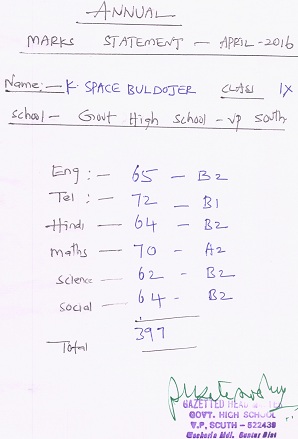 ANNUAL
MARKS STATEMENT - APRIL-2016
Name:- K. SPACE BULDOJER CLASS IX
school - Govt High school - vp south
Eng :- 65 - B2
Tel :- 72 - B1
Hindi - 64 - B2
maths - 70 - A2
science - 62 - B2
social - 64 - B2
Total 397
GAZETTED HEAD
GOVT. HIGH SCHOOL
V.P. SOUTH - 522439